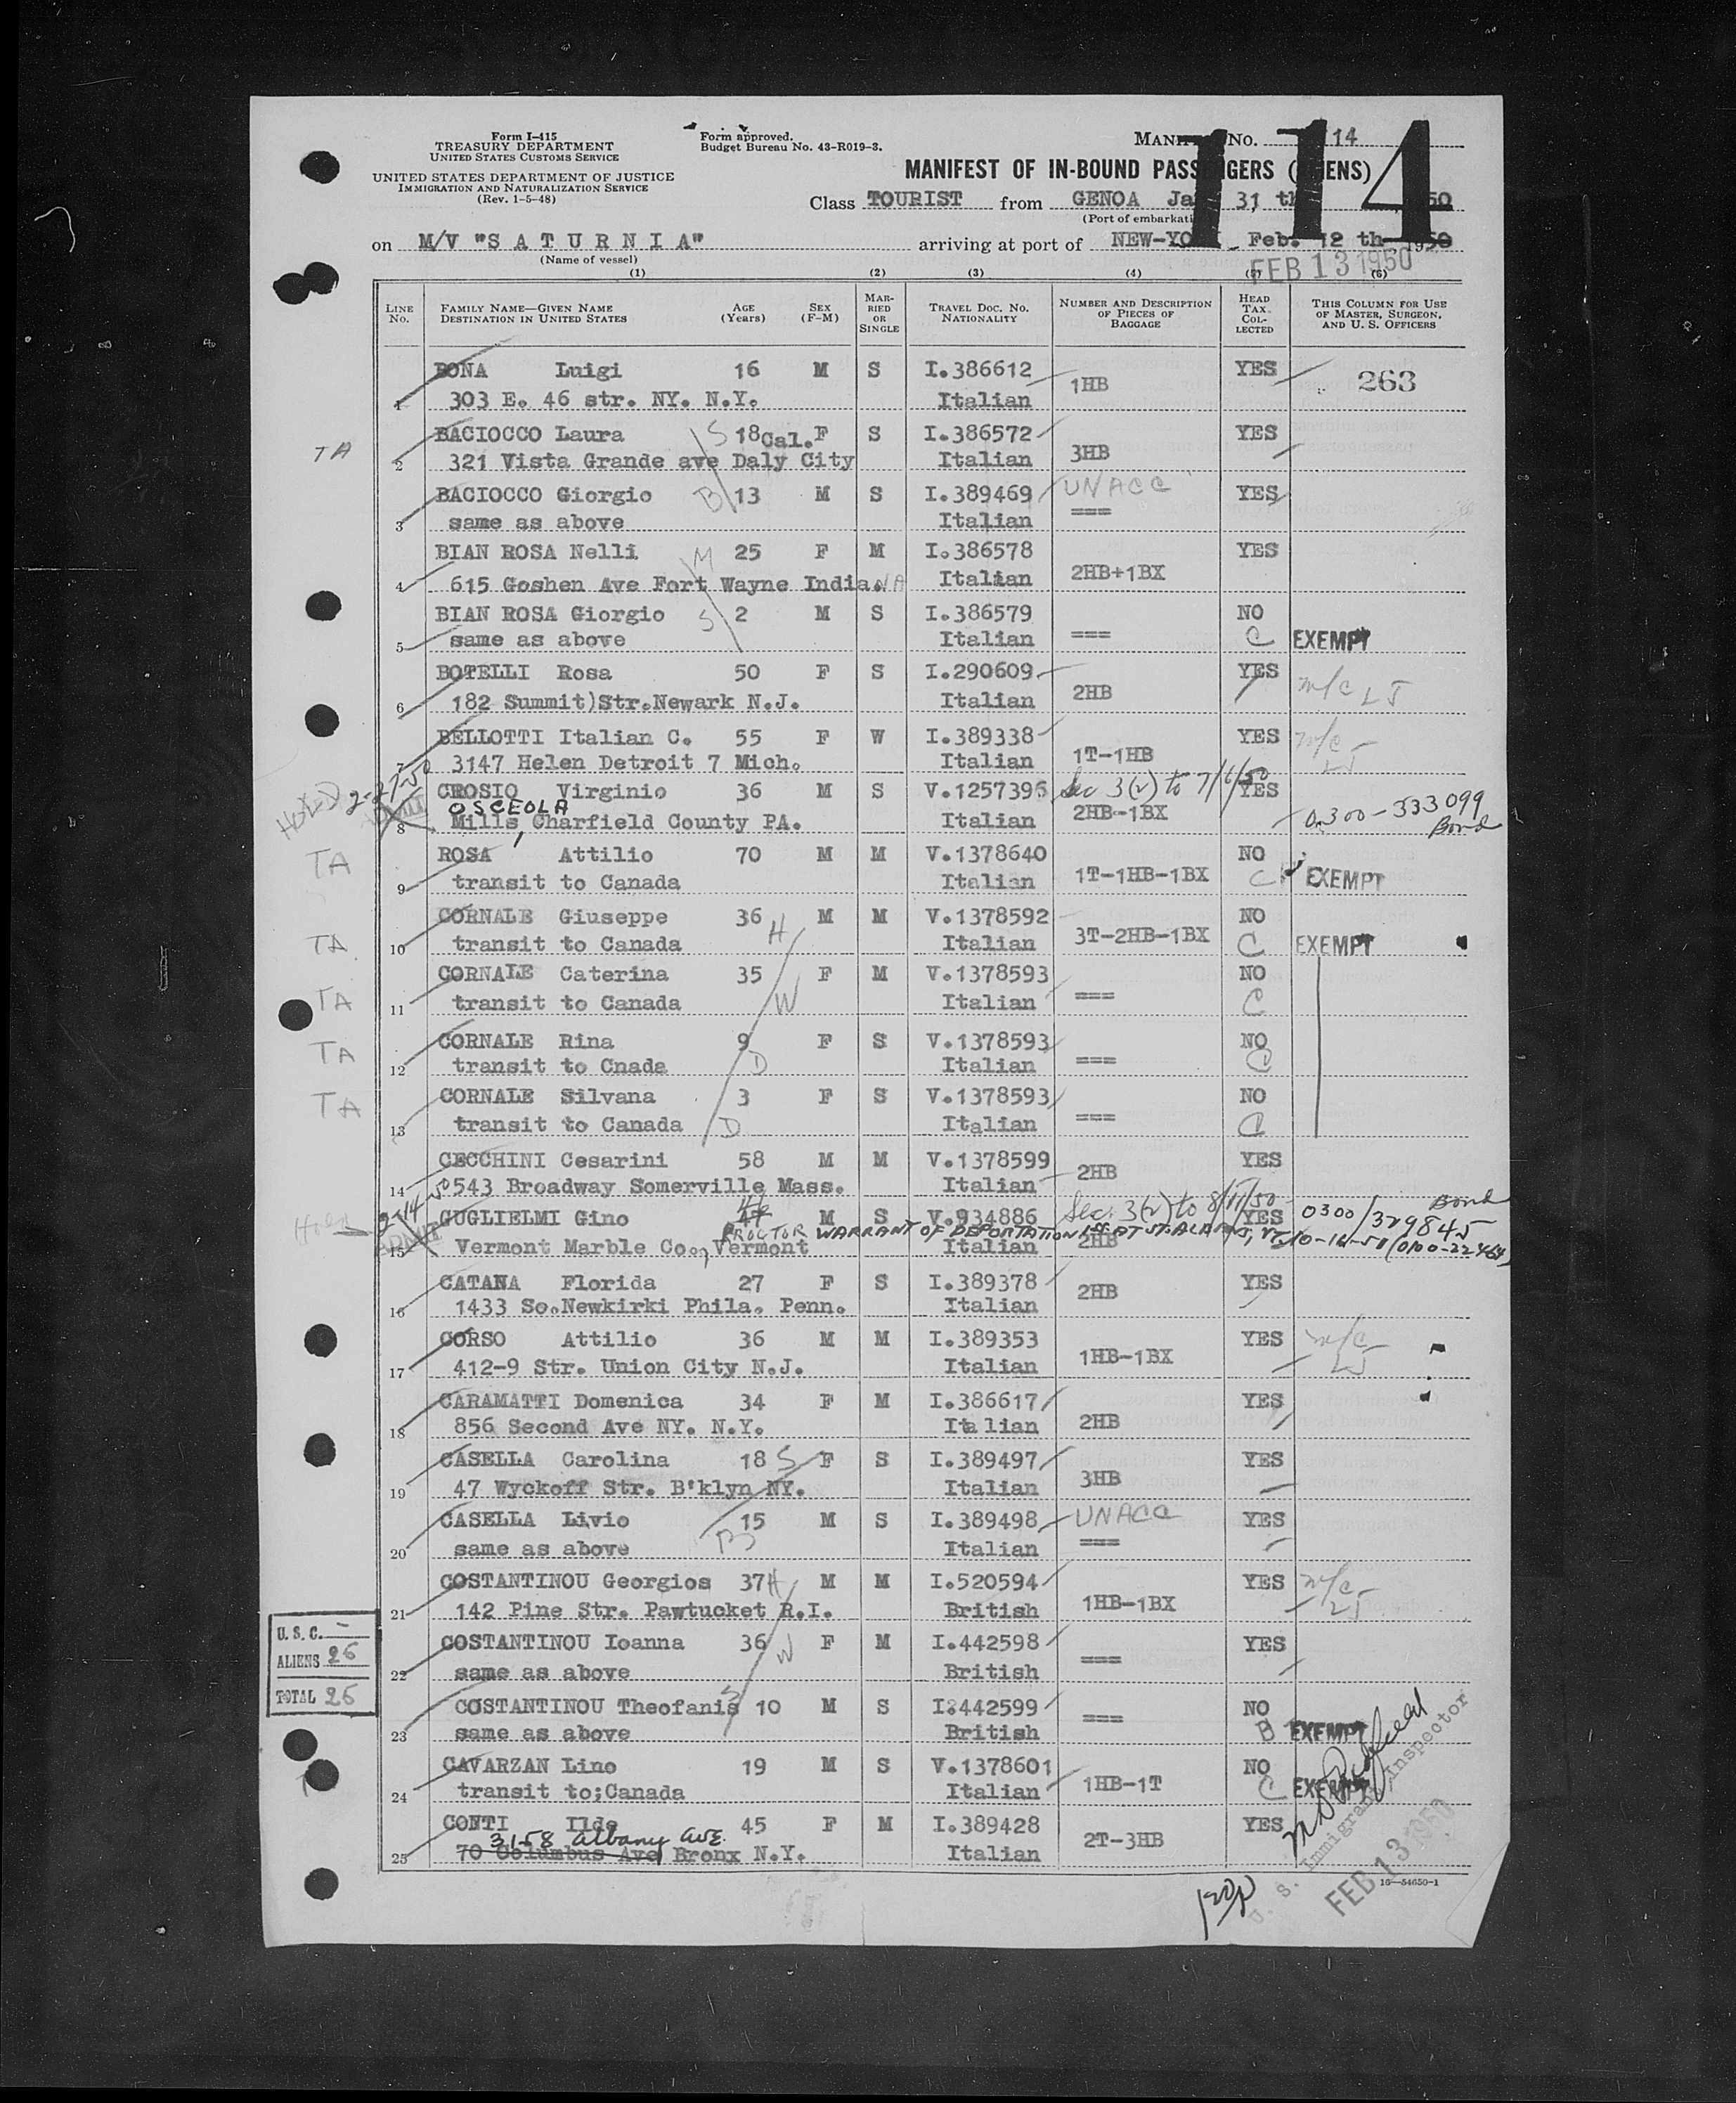 Form I-415
TREASURY DEPARTMENT
UNITED STATES CUSTOMS SERVICE
UNITED STATES DEPARTMENT OF JUSTICE
IMMIGRATION AND NATURALIZATION SERVICE
(Rev. 1-5-48)
Form approved.
Budget Bureau No. 43-R019-3.
No. 14
114
MANIFEST OF IN-BOUND
Class TOURIST from GENOA 31 th 50
(Port of
on M/V "S A T U R N I A" arriving at port of Feb. 12 th 1950
(Name of vessel)
FEB 13 1950
(1) (2) (3) (4) (5) (6)
LINE No. FAMILY NAME—GIVEN NAME DESTINATION IN UNITED STATES AGE (Years) SEX (F-M) MARRIED OR SINGLE TRAVEL DOC. No. NATIONALITY NUMBER AND DESCRIPTION OF PIECES OF BAGGAGE HEAD TAX COLLECTED THIS COLUMN FOR USE OF MASTER, SURGEON, AND U. S. OFFICERS
BONA Luigi 16 M S I.386612 1HB YES 263
1 303 E. 46 str. NY. N.Y. Italian
TA BACIOCCO Laura S 18 Cal. F S I.386572 3HB YES
2 321 Vista Grande ave Daly City Italian
BACIOCCO Giorgio B 13 M S I.389469 UNACC YES
3 same as above Italian ===
BIAN ROSA Nelli M 25 F M I.386578 YES
4 615 Goshen Ave Fort Wayne India.NA Italian 2HB+1BX
BIAN ROSA Giorgio S 2 M S I.386579 NO
5 same as above Italian === C EXEMPT
BOTELLI Rosa 50 F S I.290609 2HB YES m/c LJ
6 182 Summit)Str.Newark N.J. Italian
BELLOTTI Italian C. 55 F W I.389338 1T-1HB YES m/c LJ
7 3147 Helen Detroit 7 Mich. Italian
HOLD 2-27-50 CROSIO Virginio 36 M S V.1257396 Sec 3(2) to 7/6/50 YES
OSCEOLA
8 Mills, Charfield County PA. Italian 2HB-1BX 0300-333099 Bond
TA ROSA Attilio 70 M M V.1378640 NO
9 transit to Canada Italian 1T-1HB-1BX C EXEMPT
CORNALE Giuseppe 36 H M M V.1378592 NO
TA 10 transit to Canada Italian 3T-2HB-1BX C EXEMPT
CORNALE Caterina 35 F M V.1378593 NO
TA 11 transit to Canada W Italian === C
CORNALE Rina 9 F S V.1378593 NO
TA 12 transit to Cnada D Italian === C
CORNALE Silvana 3 F S V.1378593 NO
TA 13 transit to Canada D Italian === C
CECCHINI Cesarini 58 M M V.1378599 2HB YES
14 543 Broadway Somerville Mass. Italian
Hold 2-14-50 ADMIT GUGLIELMI Gino M S V.934886 Sec. 3(2) to 8/11/50 YES 0300/329845 Bond
PROCTOR WARRANT OF DEPORTATION ISS. AT ST. ALBANS, VT. 10-16-51 (0100-22464)
15 Vermont Marble Co., Vermont Italian 2HB
CATANA Florida 27 F S I.389378 2HB YES
16 1433 So.Newkirki Phila. Penn. Italian
CORSO Attilio 36 M M I.389353 1HB-1BX YES m/c LJ
17 412-9 Str. Union City N.J. Italian
CARAMATTI Domenica 34 F M I.386617 2HB YES
18 856 Second Ave NY. N.Y. Italian
CASELLA Carolina 18 S F S I.389497 3HB YES
19 47 Wyckoff Str. B'klyn NY. Italian
CASELLA Livio 15 M S I.389498 UNACC YES
20 same as above B Italian ===
COSTANTINOU Georgios 37 H M M I.520594 1HB-1BX YES m/c LJ
21 142 Pine Str. Pawtucket R.I. British
COSTANTINOU Ioanna 36 W F M I.442598 YES
22 same as above British ===
COSTANTINOU Theofanis S 10 M S I.442599 NO
23 same as above British === B EXEMPT
CAVARZAN Lino 19 M S V.1378601 NO
24 transit to;Canada Italian 1HB-1T C EXEMPT
CONTI Ilde 45 F M I.389428 2T-3HB YES
3158 Albany Ave.
25 70 Columbus Ave Bronx N.Y. Italian
U.S.C. -
ALIENS 26
TOTAL 26
U. S. Immigrant Inspector
FEB 13 1950
16—54650-1